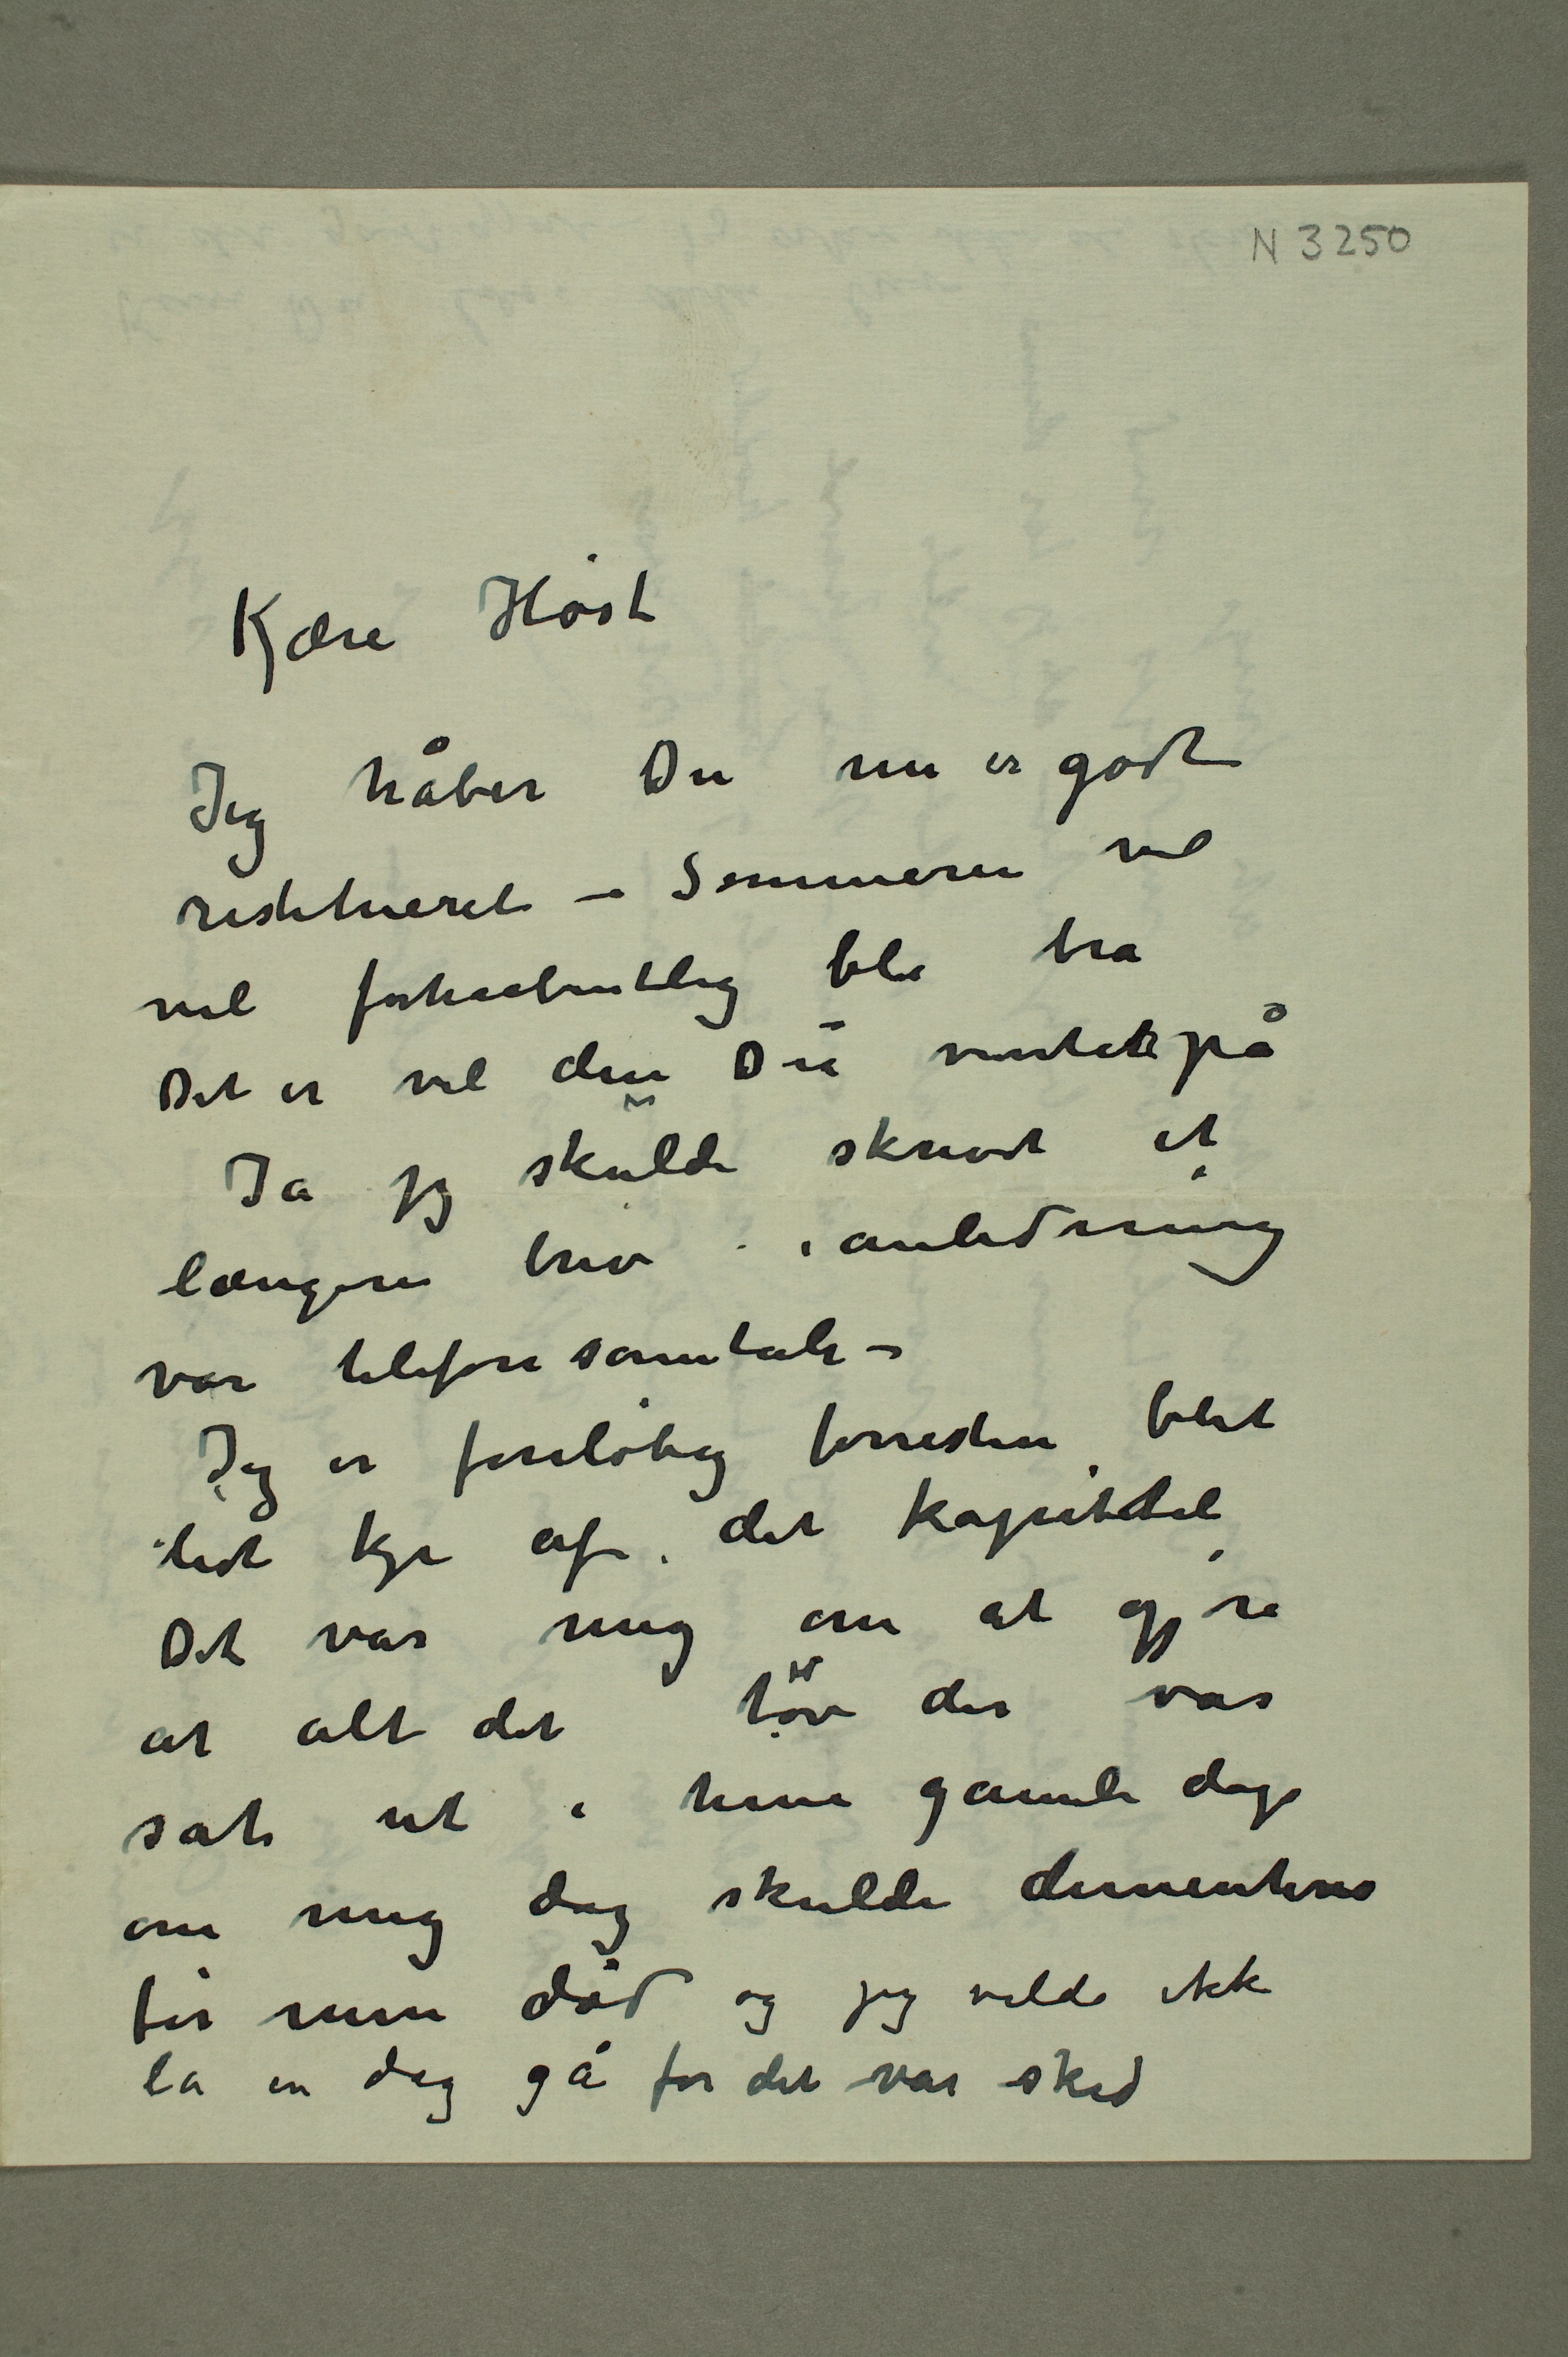 N 3250
Kjære Høst
Jeg håber Du nu er godt
restitueret – Sommeren vil
vel forhaabentlig bli bra
Det er vel den Du venter på
Ja jeg skulde skrevet et
længere brev i anledning
vor telefonsamtale –
Jeg er foreløbig forresten blet
lidt kje af det kapittel
Det var mig om at gjøre
at alt det tøv der var
sat ut i hine gamle dage
om mig dog skulde dementeres
før min død og jeg vilde ikke
la en dag gå før det var sked